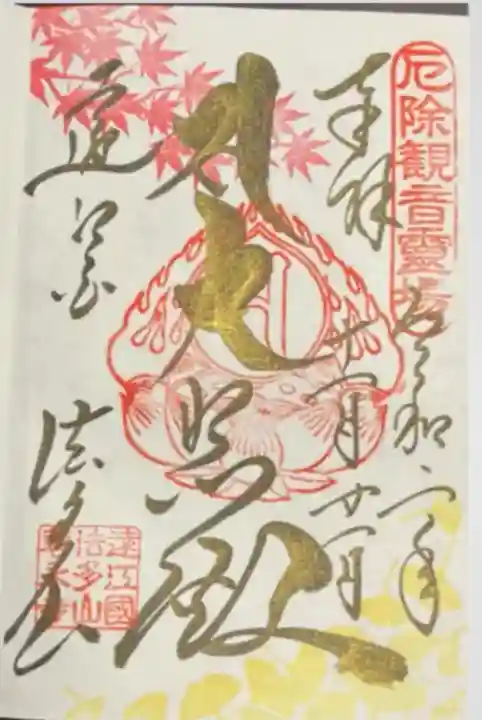 厄除観音靈場
令和二年
奉拝
十一月廿一日
殿
遠江国 法多山
遠江國
法多山
尊永寺